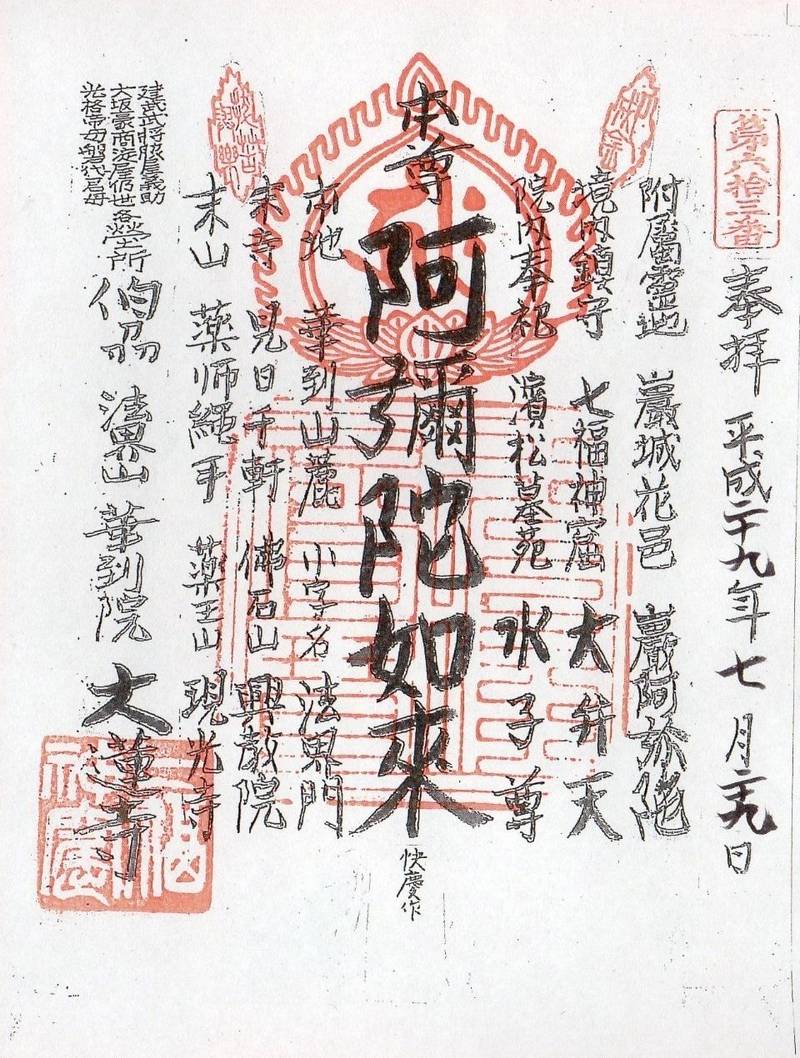 第六拾三番
奉拝 平成二十九年七月二十九日
附属霊地 巖城花邑 巖阿弥陀
境内鎮守 七福神窟 大弁天
院内奉祀 濱松墓苑 水子尊
本尊 阿彌陀如来
快慶作
本地 華到山麓 小字名 法界門
末寺 見日千軒 佛石山 興放院
末山 薬師縄手 薬王山 現光寺
建武武将脇屋義助
大坂豪商淀屋
光格帝
塋所 伯州 法界山 華到院 大蓮寺